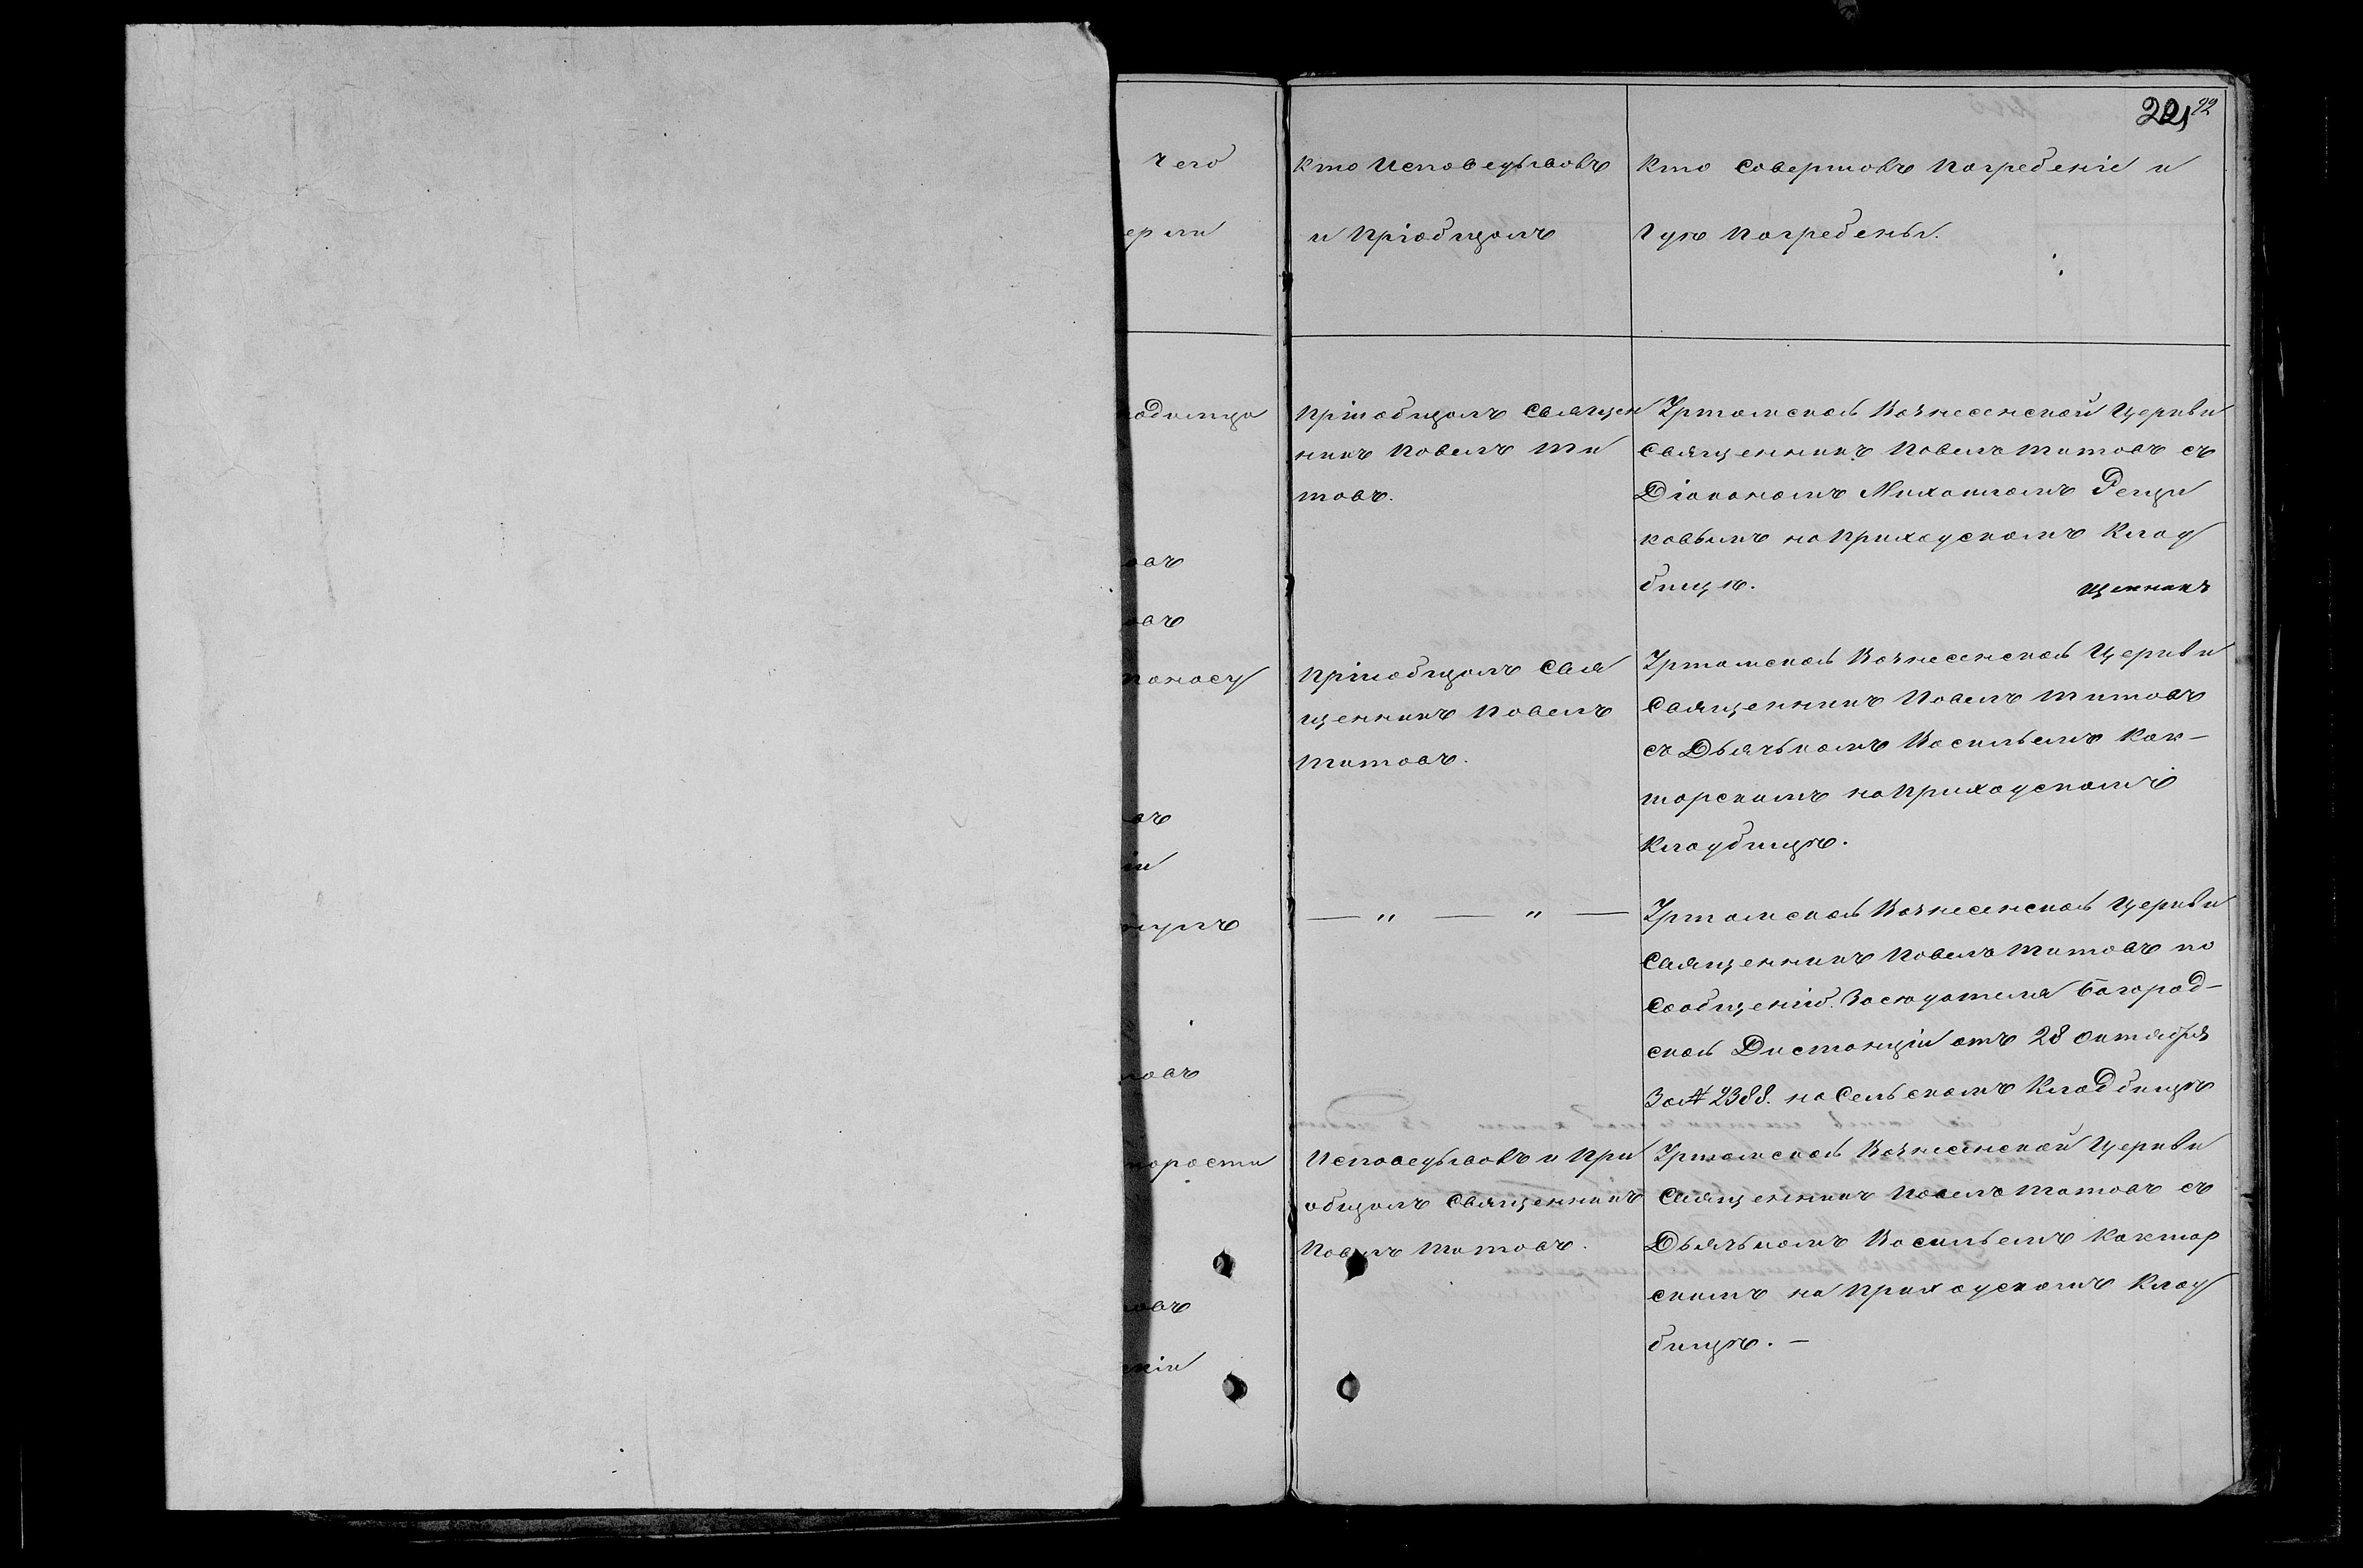 22
чего
Кто Исповедывовъ
и Пріобщолъ
Кто совершовъ Погребеніе и
Гдѣ Погребены.
Пріобщолъ Священ
никъ Повелъ Ти
товъ.
Иртомской Вознесенской Церкви
Священникъ Повелъ Титовъ съ
Діокономъ Михоиломъ Рещи
ковымъ на Приходскомъ Клад
бищѣ.
щенникъ
поносу
Пріобщолъ Свя
щенникъ Повелъ
Титовъ.
Иртомской Вознесенской Церкви
Священникъ Повелъ Титовъ
съ Дьячькомъ Восильемъ Кок-
шорскимъ на Приходскомъ
Кладбищѣ.
— " — " —
Иртомской Вознесенской Церкви
Священникъ Повелъ Титовъ по
Сообщенію Зоседотеля Богород-
ской Дистонціи отъ 28 Октября
За № 2388. на Сельскомъ Кладбищѣ
Исповедывовъ и При
общолъ Священникъ
Повелъ Титовъ.
Иртомской Вознесенской Церкви
Священникъ Повелъ Титовъ съ
Дьячькомъ Восильемъ Кокшор
скимъ на Приходскомъ Клад
бищѣ. —